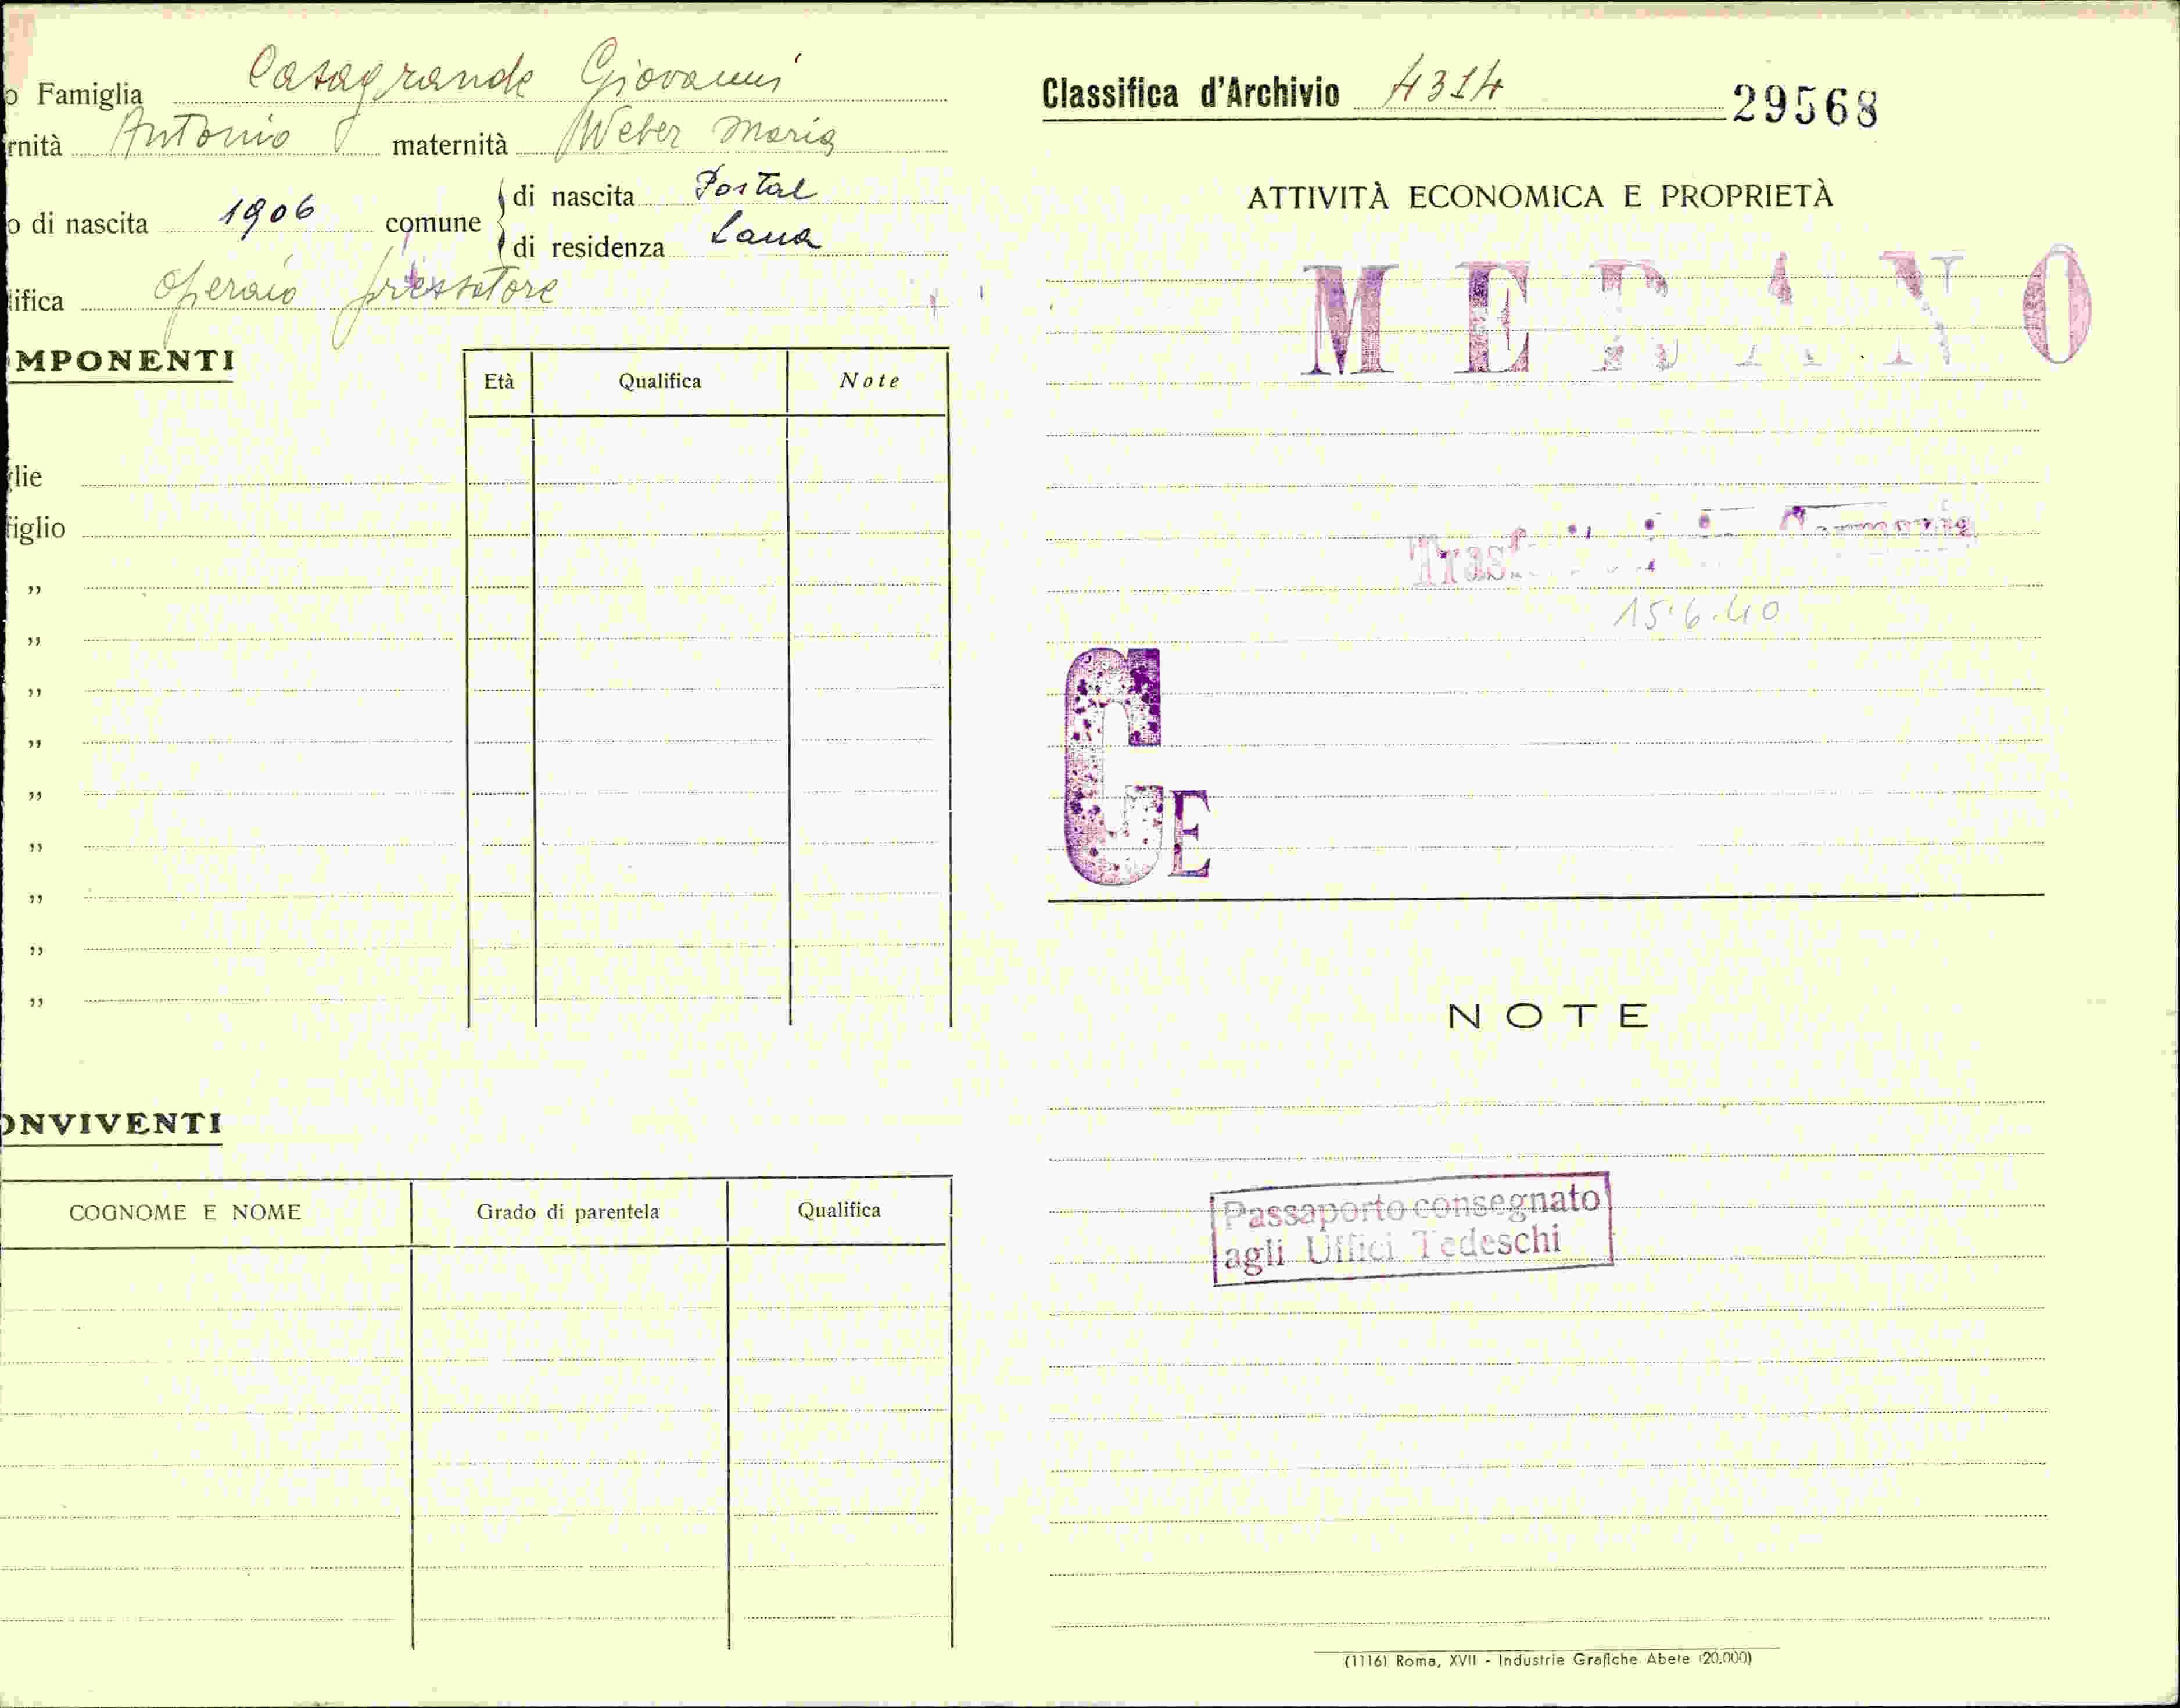 o Famiglia Casagrande Giovanni
rnità Antonio maternità Weber Maria
o di nascita 1906 comune di nascita Postal
di residenza Lana
lifica operaio pressatore
MPONENTI
Età Qualifica Note
lie
figlio
„
„
„
„
„
„
„
„
„
ONVIVENTI
COGNOME E NOME Grado di parentela Qualifica
Classifica d'Archivio 4314 29568
ATTIVITÀ ECONOMICA E PROPRIETÀ
MERANO
in Germania
15.6.40
G E
NOTE
Passaporto consegnato
agli Uffici Tedeschi
(1116) Roma, XVII - Industrie Grafiche Abete (20.000)